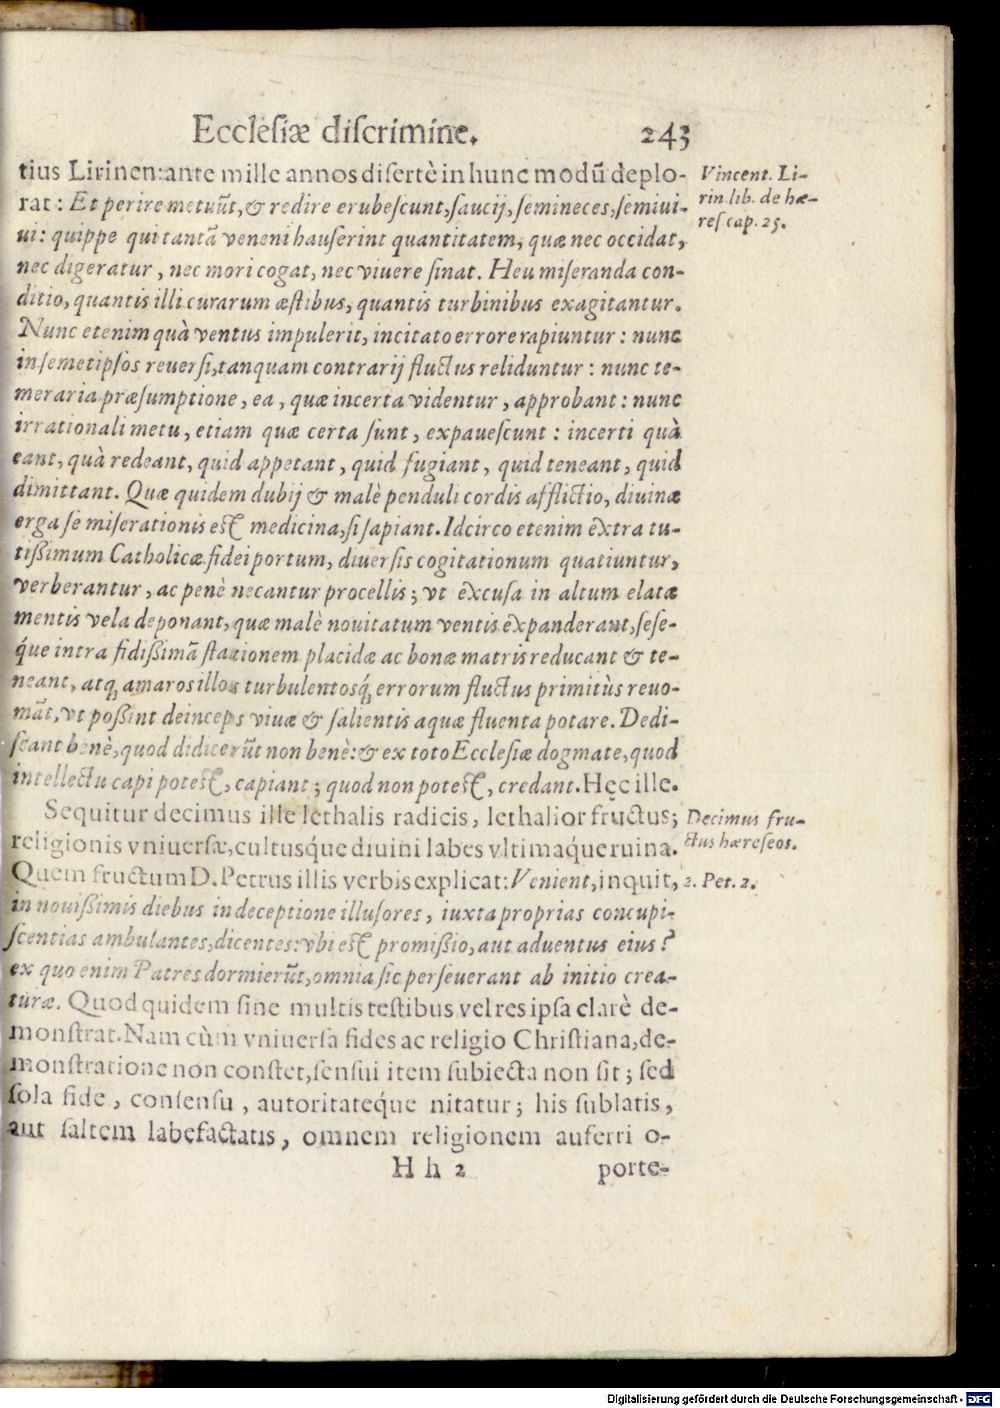 Ecclesiæ discrimine. 243
tius Lirinen: ante mille annos disertè in hunc modũ deplo-
rat: Et perire metuũt, & redire erubescunt, saucij, semineces, semiui-
ui: quippe qui tantã veneni hauserint quantitatem, quæ nec occidat,
nec digeratur, nec mori cogat, nec viuere sinat. Heu miseranda con-
ditio, quantis illi curarum æstibus, quantis turbinibus exagitantur.
Nunc etenim quà ventus impulerit, incitato errore rapiuntur: nunc
in semetipsos reuersi, tanquam contrarij fluctus reliduntur: nunc te-
meraria præsumptione, ea, quæ incerta videntur, approbant: nunc
irrationali metu, etiam quæ certa sunt, expauescunt: incerti quà
eant, quà redeant, quid appetant, quid fugiant, quid teneant, quid
dimittant. Quæ quidem dubij & malè penduli cordis afflictio, diuinæ
erga se miserationis est medicina, si sapiant. Idcirco etenim extra tu-
tißimum Catholicæ fidei portum, diuersis cogitationum quatiuntur,
verberantur, ac penè necantur procellis; vt excusa in altum elatæ
mentis vela deponant, quæ malè nouitatum ventis expanderant, sese-
q́ue intra fidißimã stationem placidæ ac bonæ matris reducant & te-
neant, atq; amaros illos turbulentosq́; errorum fluctus primitùs reuo-
mãt, vt poßint deinceps viuæ & salientis aquæ fluenta potare. Dedi-
scant benè, quod didicerũt non benè: & ex toto Ecclesiæ dogmate, quod
intellectu capi potest, capiant; quod non potest, credant. Hęc ille.
Sequitur decimus ille lethalis radicis, lethalior fructus;
religionis vniuersæ, cultusq́ue diuini labes vltimaq́ue ruina.
Quem fructum D. Petrus illis verbis explicat: Venient, inquit,
in nouißimis diebus in deceptione illusores, iuxta proprias concupi-
scentias ambulantes, dicentes: vbi est promißio, aut aduentus eius?
ex quo enim Patres dormierũt, omnia sic perseuerant ab initio crea-
turæ. Quod quidem sine multis testibus vel res ipsa clarè de-
monstrat. Nam cùm vniuersa fides ac religio Christiana, de-
monstratione non constet, sensui item subiecta non sit; sed
sola fide, consensu, autoritateq́ue nitatur; his sublatis,
aut saltem labefactatis, omnem religionem auferri o-
H h 2 porte-
Vincent. Li-
rin. lib. de hæ-
res cap. 25.
Decimus fru-
ctus hæreseos.
2. Pet. 2.
Digitalisierung gefördert durch die Deutsche Forschungsgemeinschaft - DFG